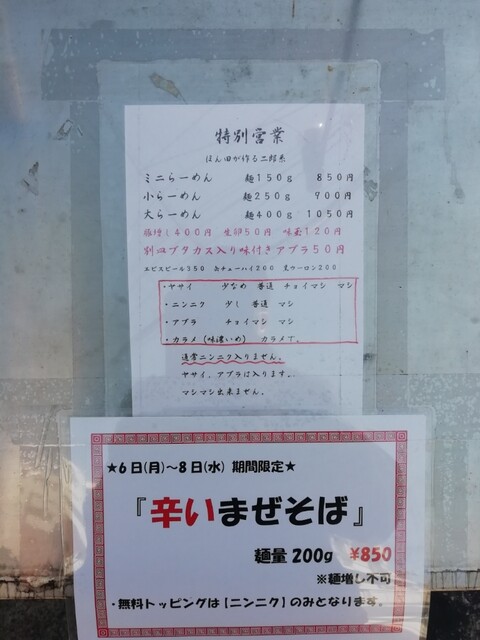 特別営業
ほん田が作る二郎系
ミニらーめん 麺150g 850円
小らーめん 麺250g 900円
大らーめん 麺400g 1050円
豚増し400円 生卵50円 味玉120円
別皿ブタカス入り味付きアブラ50円
エビスビール350 缶チューハイ200 黒ウーロン200
・ヤサイ 少なめ 普通 チョイマシ マシ
・ニンニク 少し 普通 マシ
・アブラ チョイマシ マシ
・カラメ(味濃いめ) カラメで。
通常ニンニク入りません。
ヤサイ、アブラは入ります。
マシマシ出来ません。
★6日(月)~8日(水) 期間限定★
『辛いまぜそば』
麺量200g ¥850
※麺増し不可
・無料トッピングは【ニンニク】のみとなります。